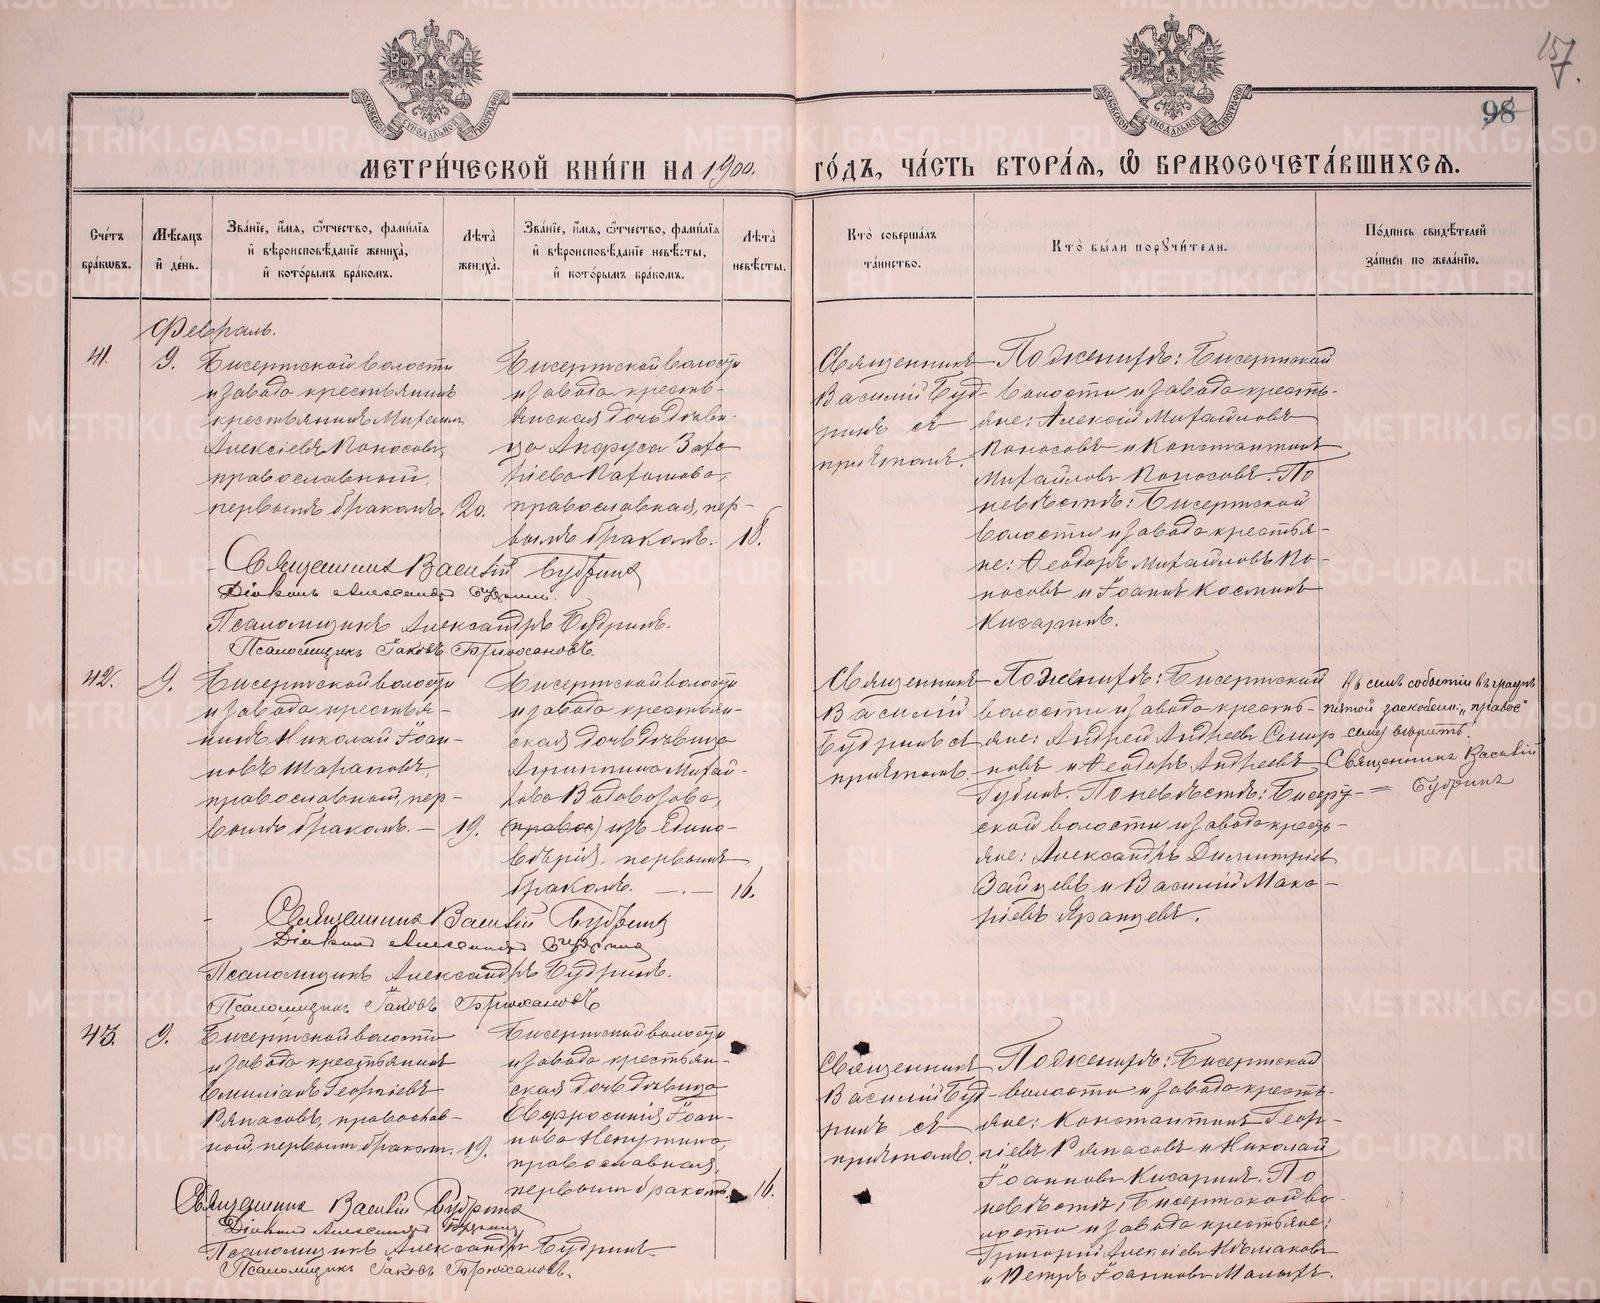 157.
98
МЕТРИ́ЧЕСКОЙ КНИ́ГИ НА 1900. ГО́ДЪ, ЧА́СТЬ ВТОРА́Я, Ѡ БРАКОСОЧЕТА́ВШИХСЯ.
Сче́тъ бра́кѡвъ.
Мѣ́сяцъ и҆ де́нь.
Зва́нїе, и҆́мя, ѻ҆́тчество, фами́лїя и҆ вѣроисповѣ́данїе жениха̀, и҆ кото́рымъ бра́комъ.
Лѣта̀ жениха̀.
Зва́нїе, и҆́мя, ѻ҆́тчество, фами́лїя и҆ вѣроисповѣ́данїе невѣ́сты, и҆ кото́рымъ бра́комъ.
Лѣта̀ невѣ́сты.
Кто̀ соверша́лъ та́инство.
Кто̀ бы́ли порꙋчи́тели.
По́дпись свидѣ́телей за́писи по жела́нїю.
Февраль.
41.
9.
Бисертской волости
и завода крестьянинъ
крестьянинъ Михаилъ
Алексіевъ Поносовъ,
православный,
первымъ бракомъ.
20.
Бисертской волости
и завода кресть-
янская дочь дѣви-
ца
православная, пер-
вымъ бракомъ.
18.
Священникъ
Василій Буд-
ринъ съ
причтомъ.
По женихѣ: Бисертской
волости и завода кресть-
яне: Алексій Михайловъ
Поносовъ и Константинъ
Михайловъ Поносовъ. По
невѣстѣ: Бисертской
волости и завода крестья-
не: Ѳеодоръ Михайловъ По-
носовъ и Іоаннъ Косминъ
Кисаринъ.
Священникъ Василій Будринъ
Діаконъ Александръ Будринъ.
Псаломщикъ Александръ Будринъ.
Псаломщикъ Іаковъ Брюхановъ.
42.
9.
Бисертской волости
и завода крестья-
нинъ Николай Іоан-
новъ Шараповъ,
православный, пер-
вымъ бракомъ. —
19.
Бисертской волости
и завода крестьян-
ская дочь дѣвица
Агриппина Михай-
лова Водовозова,
(правос) изъ едино-
вѣрія, первымъ
бракомъ. —.—
16.
Священникъ
Василій
Будринъ съ
причтомъ.
По женихѣ: Бисертской
волости и завода кресть-
яне: Андрей Андреевъ Смир-
новъ и Ѳеодоръ Андреевъ
Губинъ. По невѣстѣ: Бисерт-
ской волости и завода кресть-
яне: Александръ Димитріевъ
Зайцевъ и Василій Мака-
ріевъ Яранцевъ.
Въ семъ событіи въ графѣ
пятой заскоблено: „правос"
сему вѣрить.
Священникъ Василій
Будринъ
Священникъ Василій Будринъ
Діаконъ Александръ Будринъ
Псаломщикъ Александръ Будринъ.
Псаломщикъ Іаковъ Брюхановъ
43.
9.
Бисертской волости
и завода крестьянинъ
Емиліанъ Георгіевъ
Ряпасовъ, православ-
ной, первымъ бракомъ.
19.
Бисертской волости
и завода крестьян-
ская дочь дѣвица
Евфросинія Іоан-
нова
православная,
первымъ бракомъ.
16.
Священникъ
Василій Буд-
ринъ съ
причтомъ.
По женихѣ: Бисертской
волости и завода кресть-
яне: Константинъ Геор-
гіевъ Ряпасовъ и Николай
Іоанновъ Кисаринъ. По
невѣстѣ: Бисертской во-
лости и завода крестьяне:
Григорій Алексіевъ
и Петръ Іоанновъ Малыхъ.
Священникъ Василій Будринъ
Діаконъ Александръ Будринъ
Псаломщикъ Александръ Будринъ
Псаломщикъ Іаковъ Брюхановъ.
METRIKI.GASO-URAL.RU